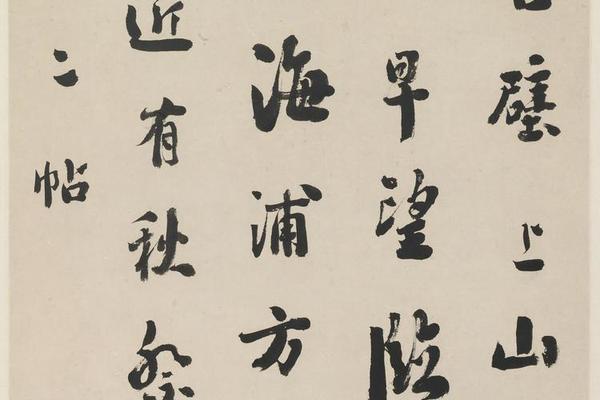 壁上山
早望臨
海浦方
近有秋
二帖